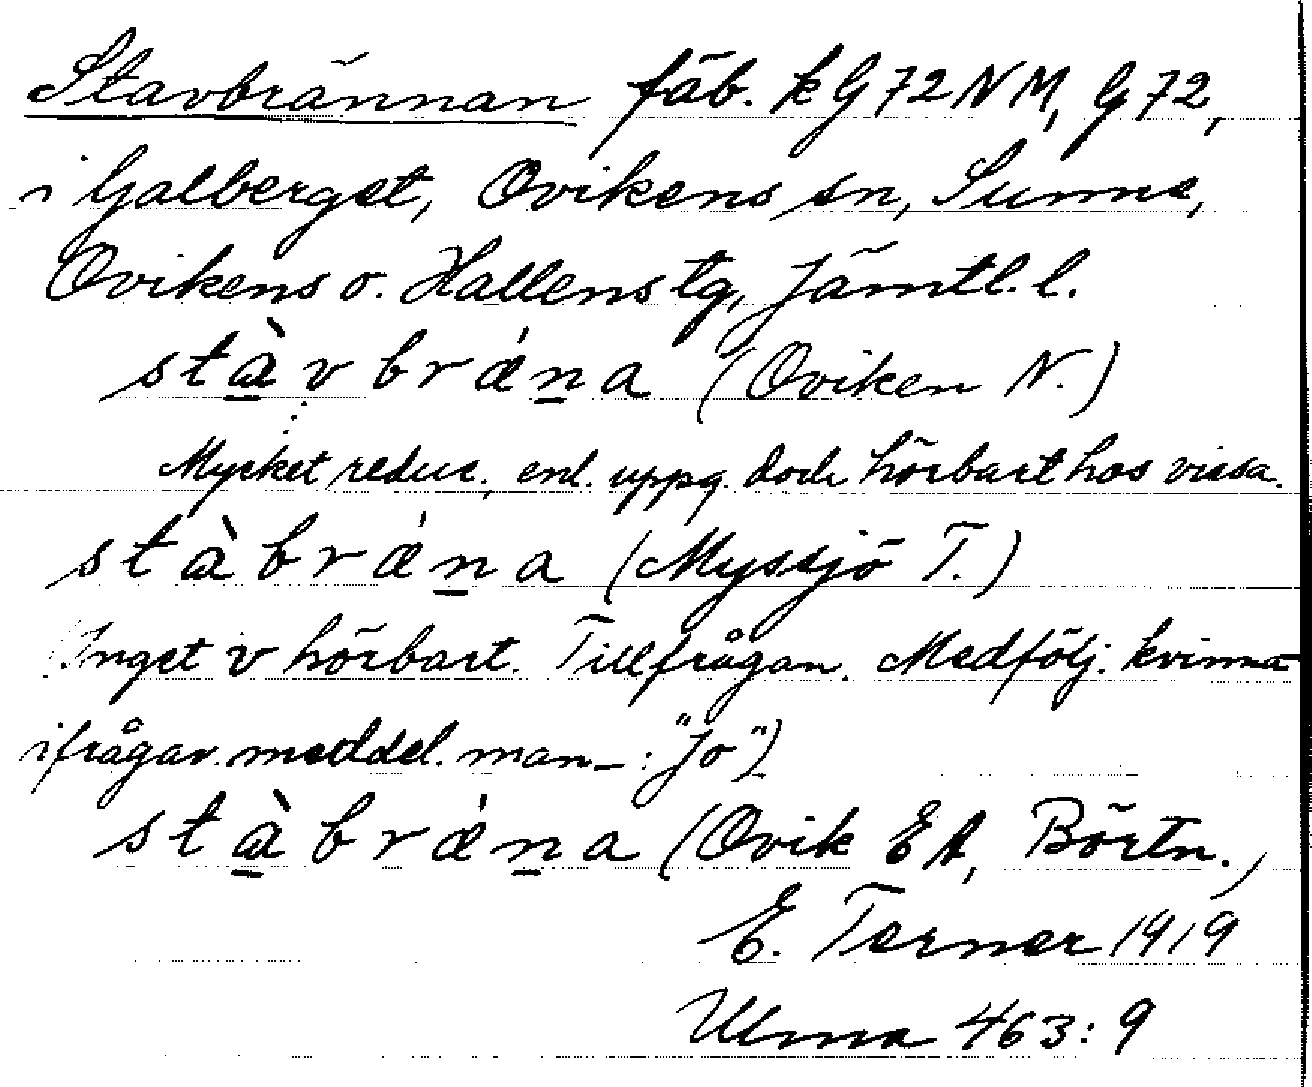 Stavbrännan fäb. k G 72 NM, G 72,
i Galberget, Ovikens sn, Sunne,
Ovikens o. Hallens tg, Jämtl. l.
stàvbrǽna (Oviken N.)
Mycket reduc., enl. uppg. dock hörbart hos vissa.
stàbrǽna (Myssjö T.)
(Inget v hörbart. Tillfrågan. Medfölj. kvinna
ifrågav. meddel. man – : "Jo")
stàbrǽna (Ovik EA, Börtn.)
E. Terner 1919
Ulma 463:9